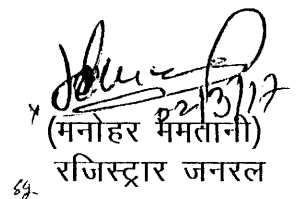 02/3/17
(मनोहर ममतानी)
रजिस्ट्रार जनरल